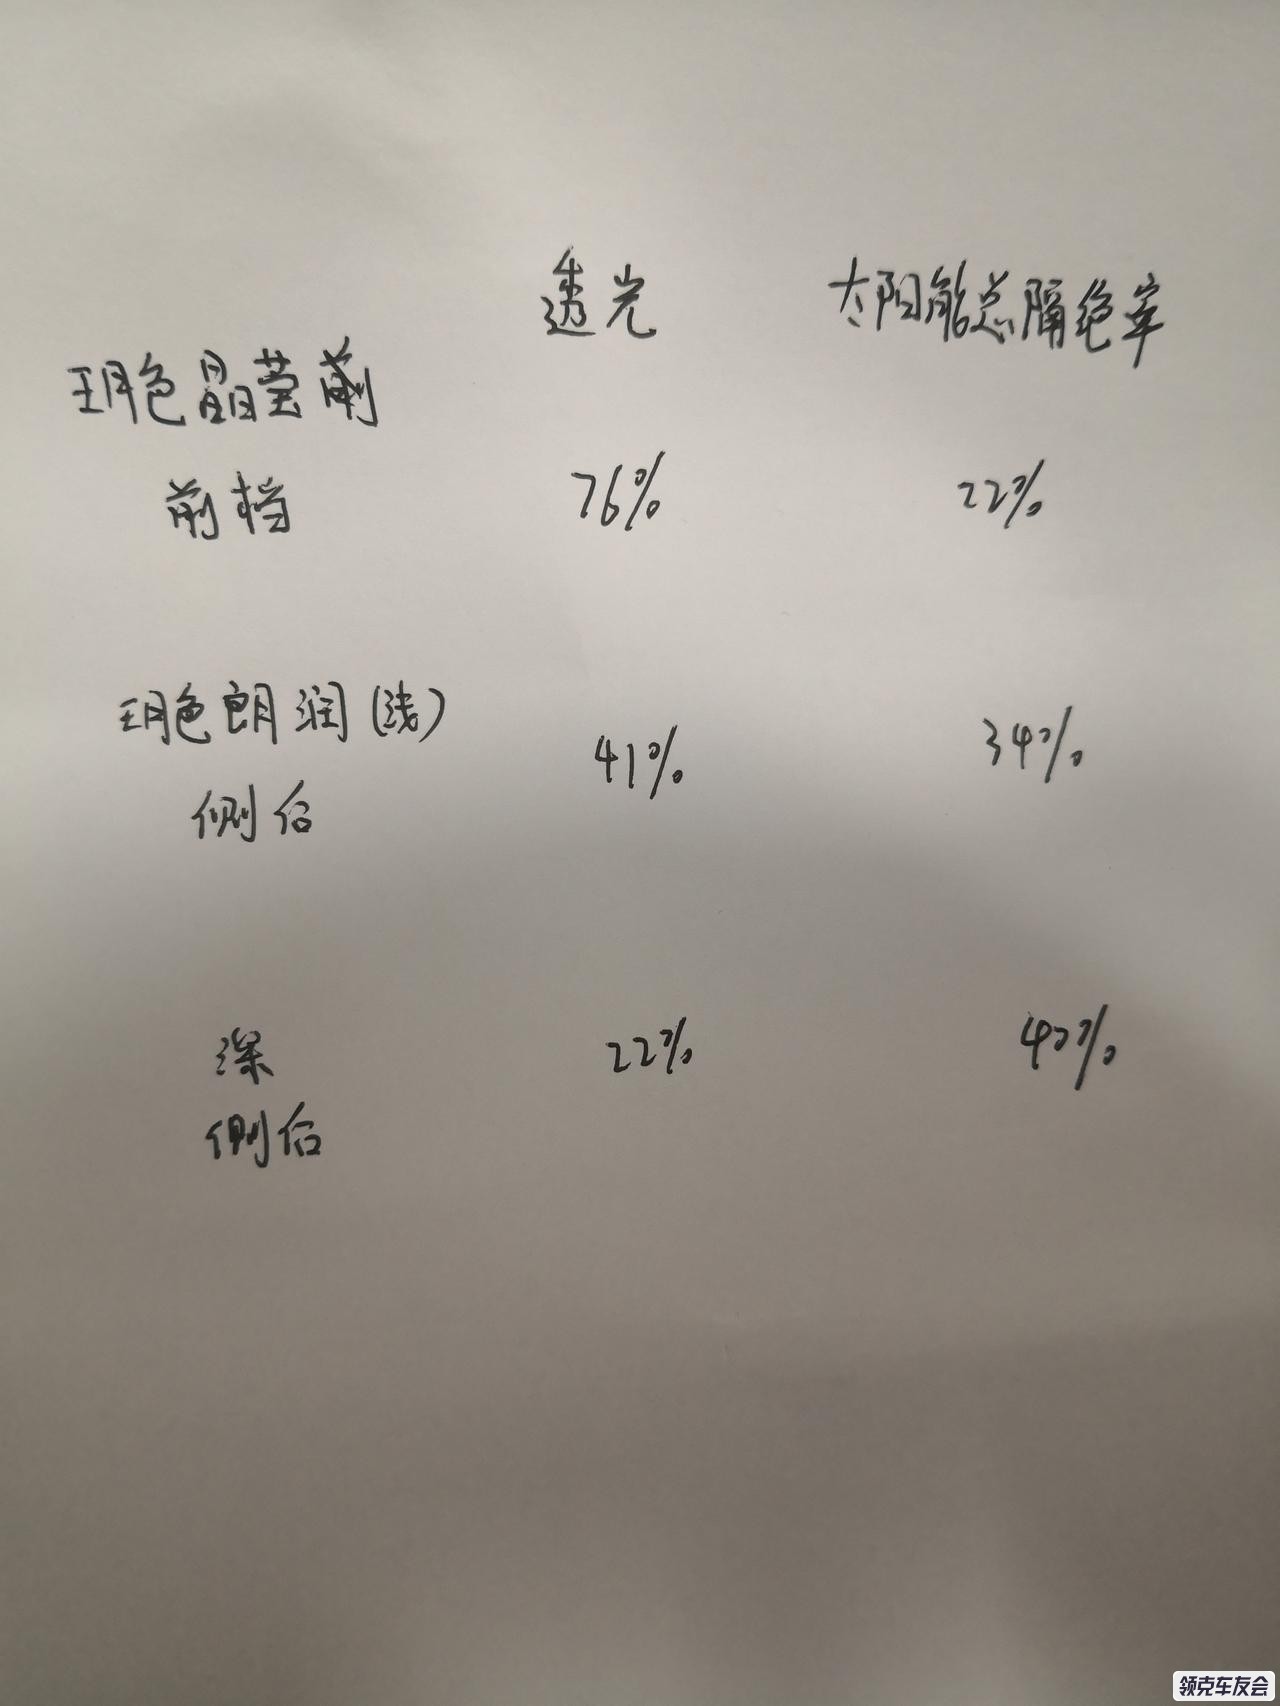 透光 太阳能总隔绝率
玥色晶莹
前档 76% 22%
玥色朗润(浅) 41% 34%
侧后
深 22% 40%
侧后
领克车友会